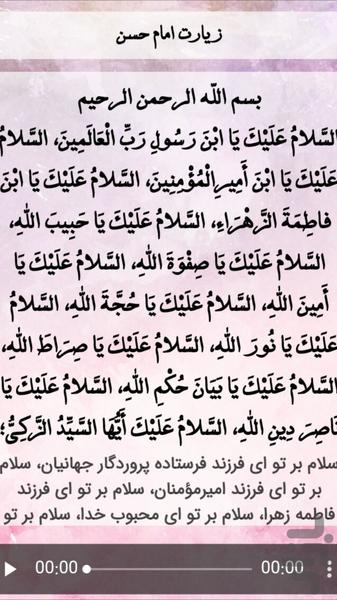 زیارت امام حسن
بسم اللّه الرحمن الرحیم
السَّلامُ عَلَیْكَ یَا ابْنَ رَسُولِ رَبِّ الْعَالَمِینَ، السَّلامُ
عَلَیْكَ یَا ابْنَ أَمِیرِالْمُؤْمِنِینَ، السَّلامُ عَلَیْكَ یَا ابْنَ
فاطِمَةَ الزَّهْرَاءِ، السَّلامُ عَلَیْكَ یَا حَبِیبَ اللّٰهِ،
السَّلامُ عَلَیْكَ یَا صِفْوَةَ اللّٰهِ، السَّلامُ عَلَیْكَ یَا
أَمِینَ اللّٰهِ، السَّلامُ عَلَیْكَ یَا حُجَّةَ اللّٰهِ، السَّلامُ
عَلَیْكَ یَا نُورَ اللّٰهِ، السَّلامُ عَلَیْكَ یَا صِرَاطَ اللّٰهِ،
السَّلامُ عَلَیْكَ یَا بَیَانَ حُكْمِ اللّٰهِ، السَّلامُ عَلَیْكَ یَا
نَاصِرَ دِینِ اللّٰهِ، السَّلامُ عَلَیْكَ أَیُّهَا السَّیِّدُ الزَّكِیُّ؛
سلام بر تو ای فرزند فرستاده پروردگار جهانیان، سلام
بر تو ای فرزند امیرمؤمنان، سلام بر تو ای فرزند
فاطمه زهرا، سلام بر تو ای محبوب خدا، سلام بر تو
00:00 00:00